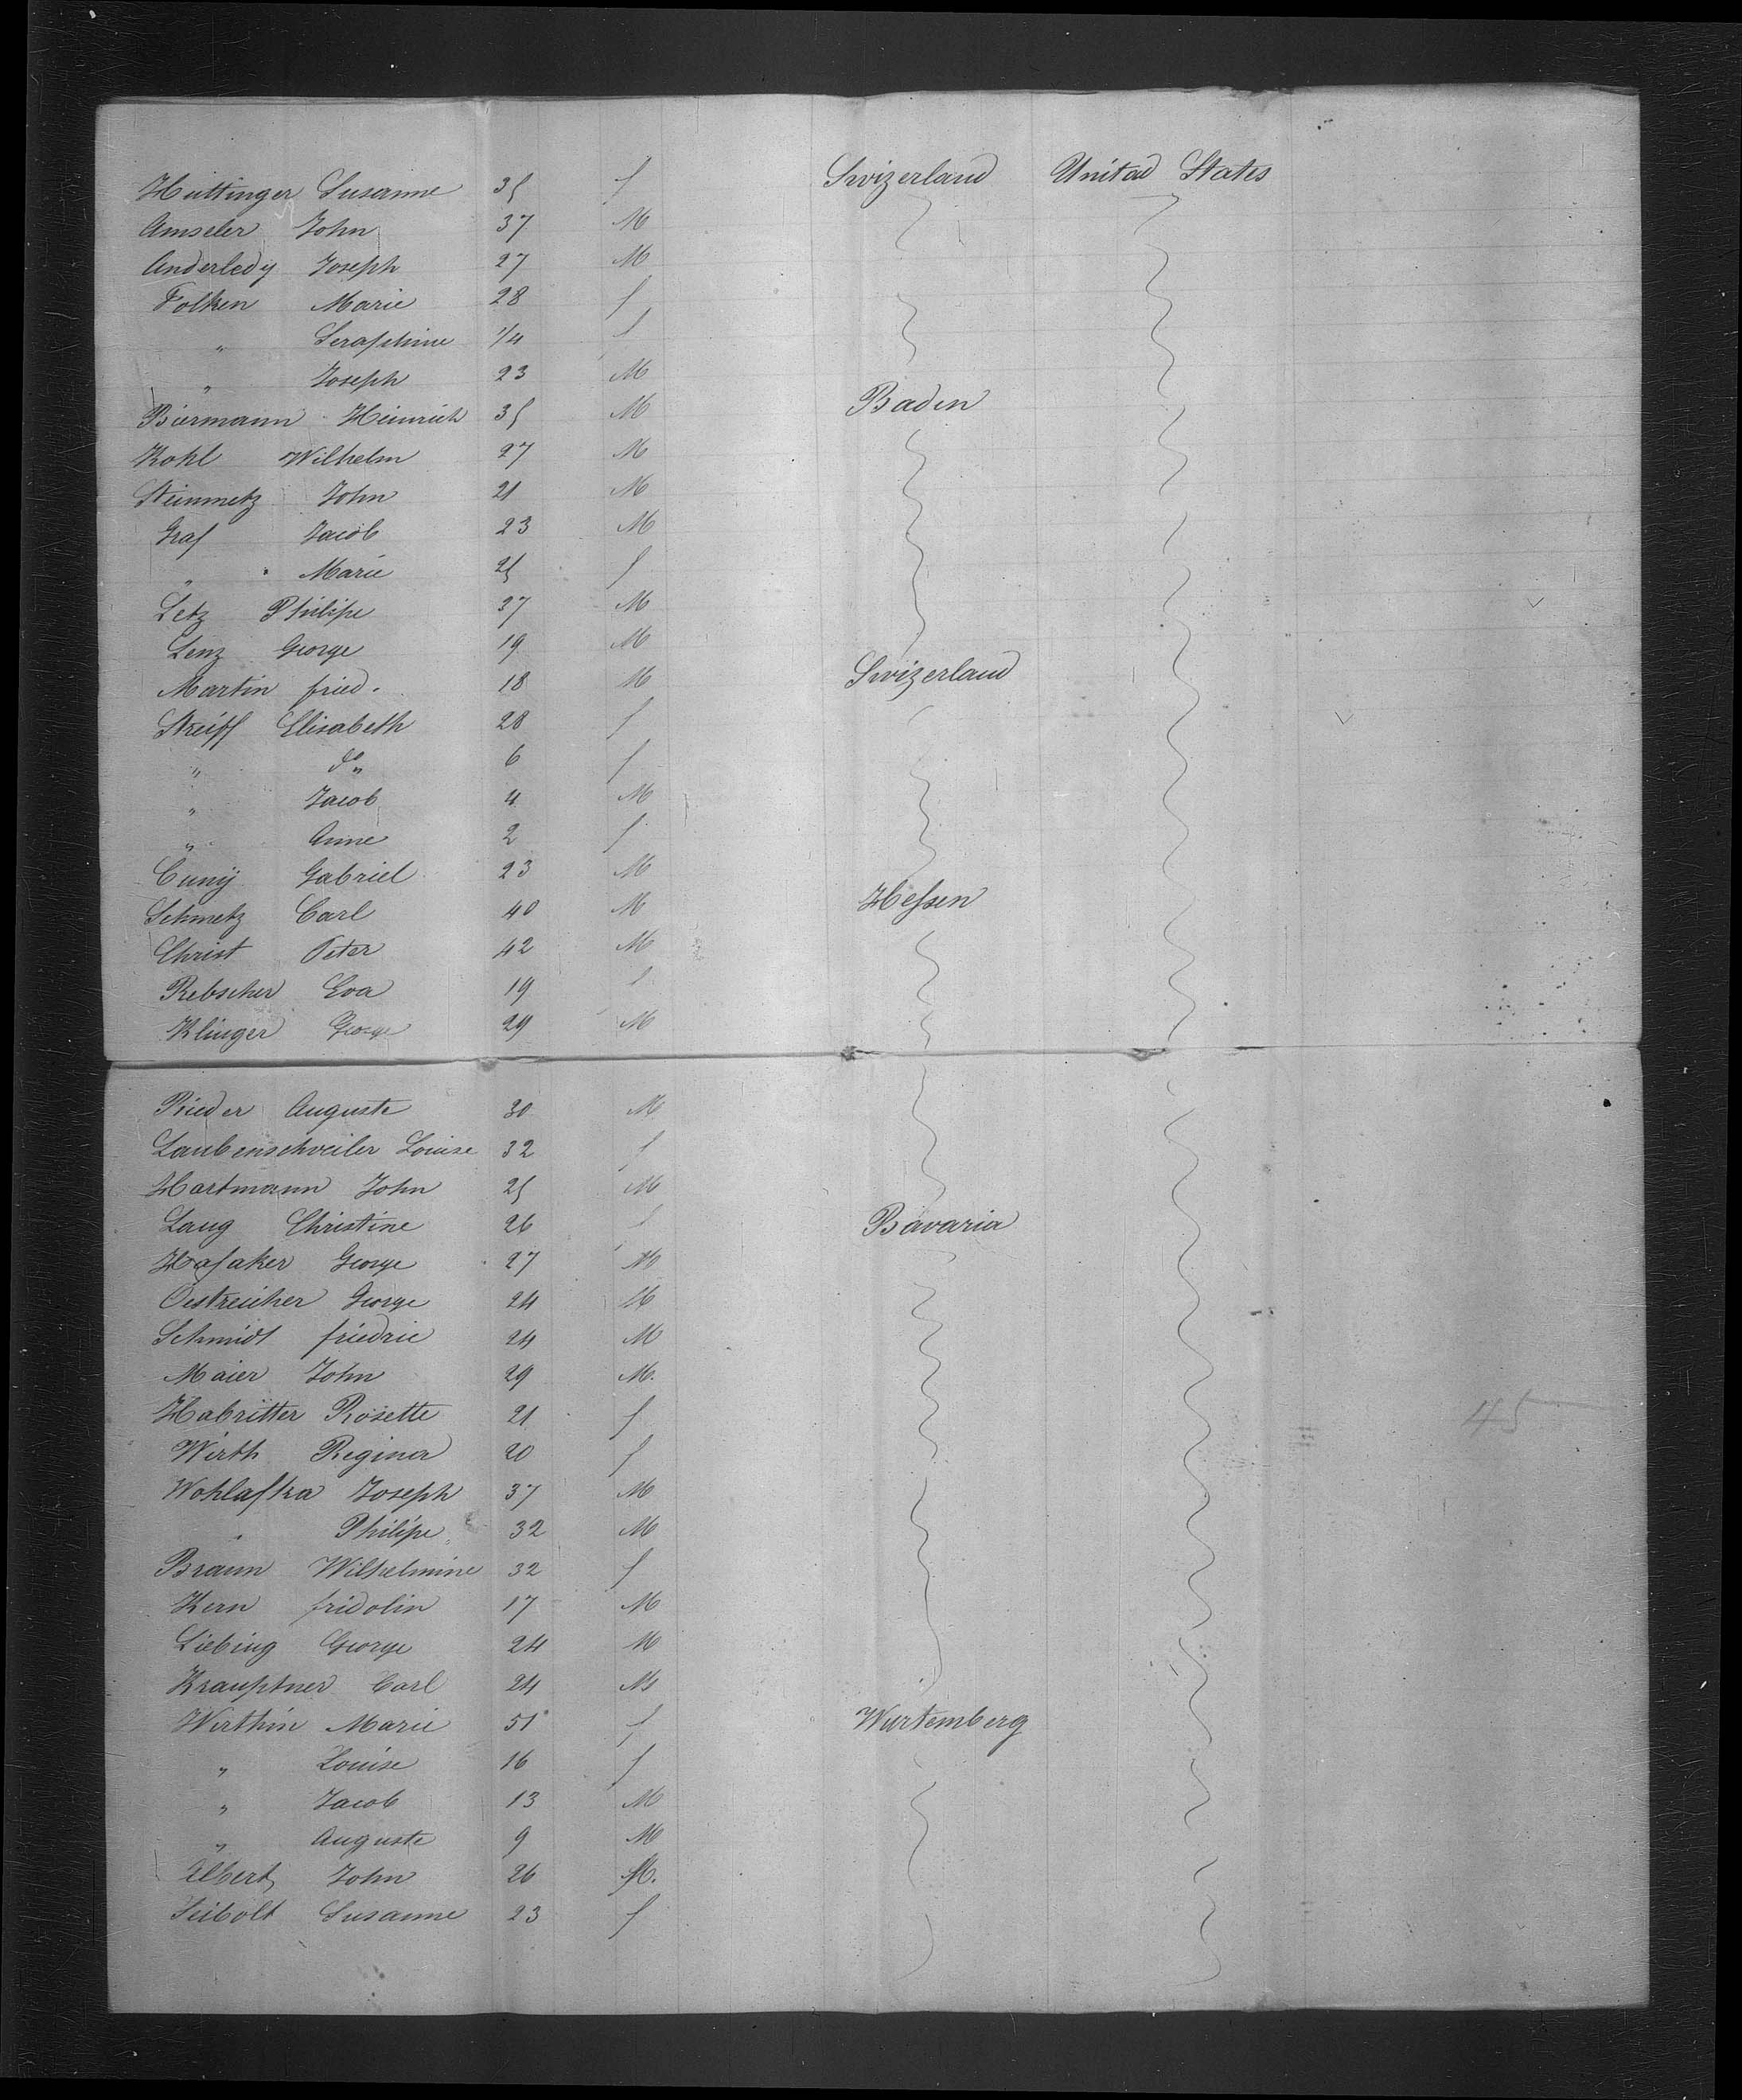 Huttinger Susanne 35 f Swizerland United States
Amseler John 37 M
Anderledy Joseph 27 M
Folken Marie 28 f
" Seraphine 1/4 f
" Joseph 23 M
Biermann Heinrich 35 M Baden
Kohl Wilhelm 27 M
Steinmetz John 21 M
Graf Jacob 23 M
" Marie 25 f
Letz Philipe 37 M
Lenz George 19 M
Martin fried. 18 M Swizerland
Streiff Elisabeth 28 f
" do 6 f
" Jacob 4 M
" Anne 2 f
Cuny Gabriel 23 M
Schmetz Carl 40 M Hessen
Christ Peter 42 M
Rebscher Eva 19 f
Klinger George 29 M
Rieder Auguste 30 M
Laubenschweiler Louise 32 f
Hartmann John 25 M
Laug Christine 26 f Bavaria
Hafaker George 27 M
Oestreicher George 24 M
Schmidt friedric 24 M
Maier John 29 M.
Habritter Rosette 21 f 45
Wirth Regina 20 f
Wohlafka Joseph 37 M
" Philipe 32 M
Braun Wilhelmine 32 f
Kern fridolin 17 M
Liebing George 24 M
Krauptner Carl 24 M
Wirthin Marie 51 f Wurtemberg
" Louise 16 f
" Jacob 13 M
" Auguste 9 M
Elbert John 26 M.
Seibolt Susanne 23 f